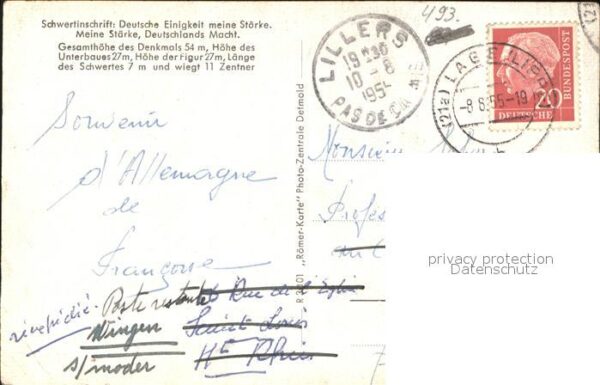 Schwertinschrift: Deutsche Einigkeit meine Stärke.
Meine Stärke, Deutschlands Macht.
Gesamthöhe des Denkmals 54 m, Höhe des
Unterbaues 27m, Höhe der Figur 27m, Länge
des Schwertes 7 m und wiegt 11 Zentner
493.
LILLERS
10 - 8
PAS DE
(21a) LAGE (LIPPE
-8.8.55-19
20
DEUTSCHE
BUNDESPOST
Souvenir
d'Allemagne
de
Françoise
"Römer-Karte" Photo-Zentrale Detmold
Monsieur
Profes
privacy protection
Datenschutz
Rue de l'Eglise
Saint Louis
Ht Rhin
réexpédié.
Poste restante
Wingen
s/moder